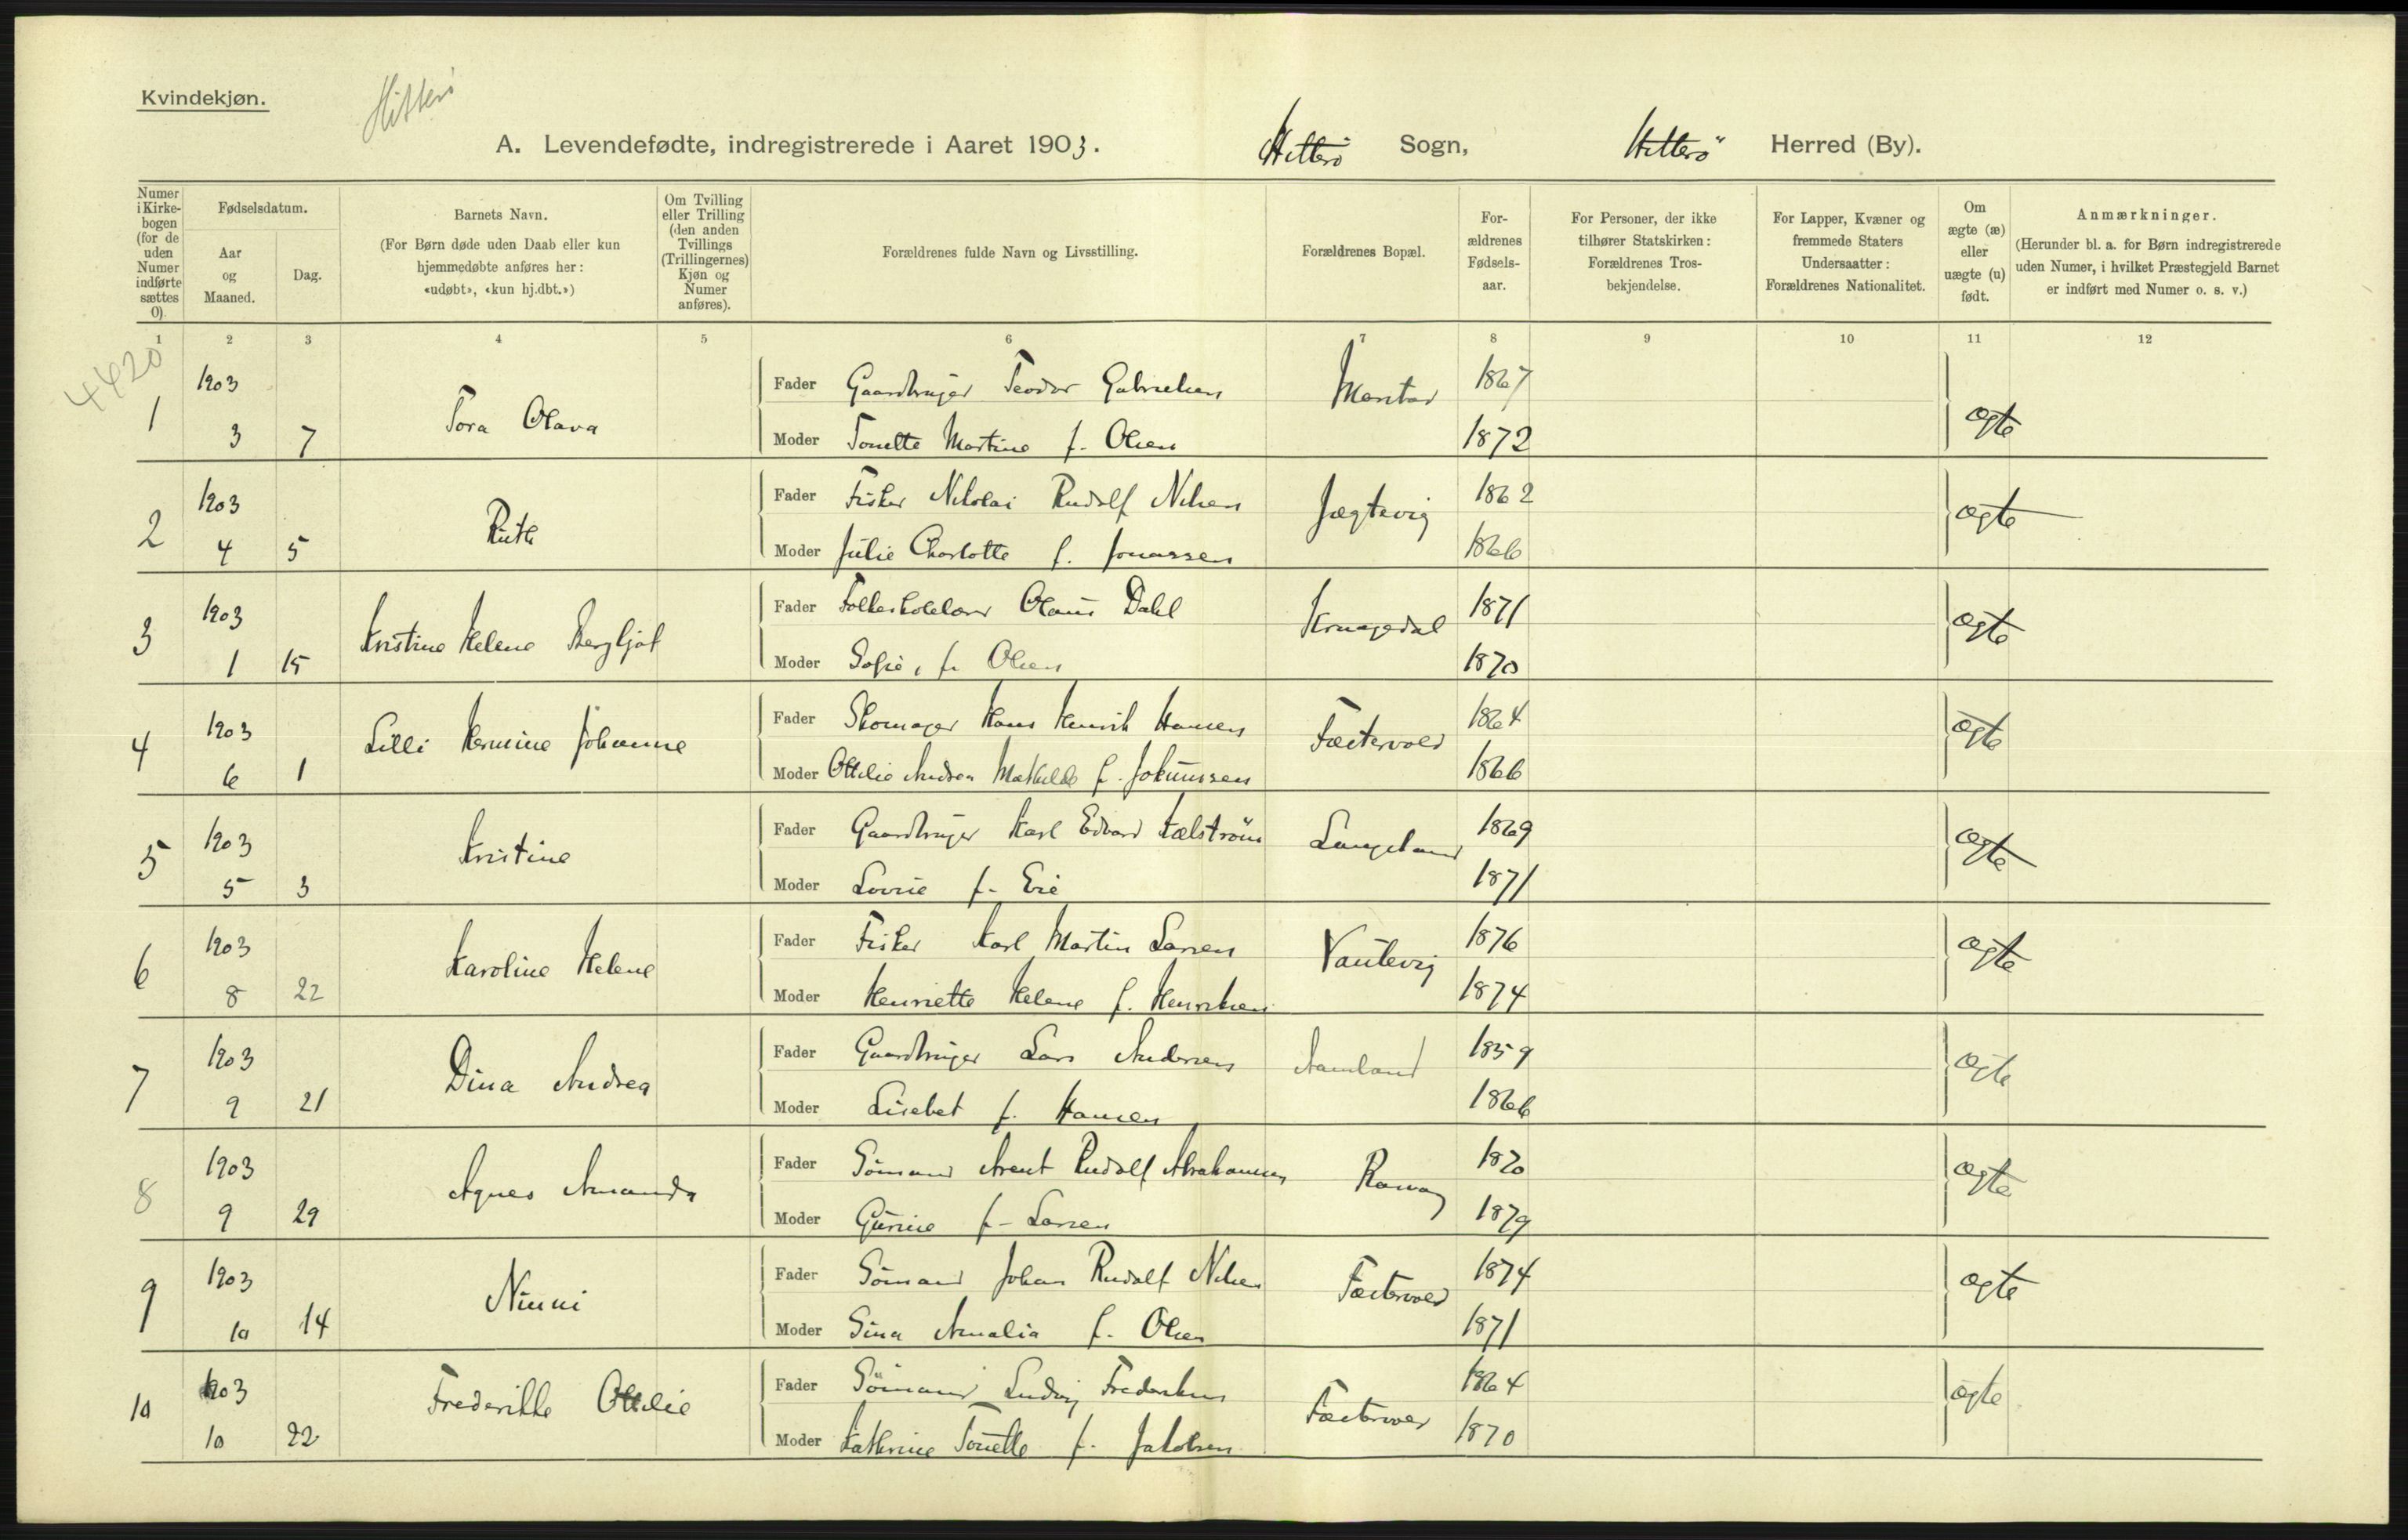 Kvindekjøn.
Hitterö
A. Levendefødte, indregistrerede i Aaret 1903. Hitterö Sogn, Hitterö Herred (By).
Numer i Kirkebogen (for de uden Numer indførte sættes 0).
Fødselsdatum.
Aar og Maaned.
Dag.
Barnets Navn.
(For Børn døde uden Daab eller kun hjemmedøbte anføres her: «udøbt», «kun hj.dbt.»)
Om Tvilling eller Trilling (den anden Tvillings (Trillingernes) Kjøn og Numer anføres).
Forældrenes fulde Navn og Livsstilling.
Forældrenes Bopæl.
Forældrenes Fødselsaar.
For Personer, der ikke tilhører Statskirken: Forældrenes Trosbekjendelse.
For Lapper, Kvæner og fremmede Staters Undersaatter: Forældrenes Nationalitet.
Om ægte (æ) eller uægte (u) født.
Anmærkninger.
(Herunder bl. a. for Børn indregistrerede uden Numer, i hvilket Præstegjeld Barnet er indført med Numer o. s. v.)
1 2 3 4 5 6 7 8 9 10 11 12
4420
1 1903 3 7 Tora Olava
Fader Gaardbruger Teodor Gabrielsen 1867
Moder Tonette Martine f. Olsen 1872
ægte
2 1903 4 5 Rut
Fader Fisker Nikolai Rudolf Nilsen Jægtevig 1862
Moder Julie Charlotte f. Jonassen 1866
ægte
3 1903 1 15 Kristine Helene Bergljot
Fader Folkeskolelærer Olaus Dahl 1871
Moder Sofie, f. Olsen 1870
ægte
4 1903 6 1 Lilli Hermine Johanne
Fader Skomager Hans Henrik Hansen 1864
Moder Ottilie Andrea Mathilde f. Johnussen 1866
ægte
5 1903 5 3 Kristine
Fader Gaardbruger Karl Edvard Kælström Langeland 1869
Moder Lovise f. Eie 1871
ægte
6 1903 8 22 Karoline Helene
Fader Fisker Karl Martin Larsen 1876
Moder Henriette Helene f. Henriksen 1874
ægte
7 1903 9 21 Dina Andrea
Fader Gaardbruger Lars Andersen Aamland 1859
Moder Lisebet f. Hansen 1866
ægte
8 1903 9 29 Agnes Amanda
Fader Sömand Arent Rudolf Abrahamsen 1870
Moder Gurine f. Larsen 1879
ægte
9 1903 10 14 Ninni
Fader Sömand Johan Rudolf Nilsen 1874
Moder Sina Amalia f. Olsen 1871
ægte
10 1903 10 22 Frederikke Ottilie
Fader Sömand Ludvig Frederiksen 1864
Moder Kathrine Tonette f. Jakobsen 1870
ægte